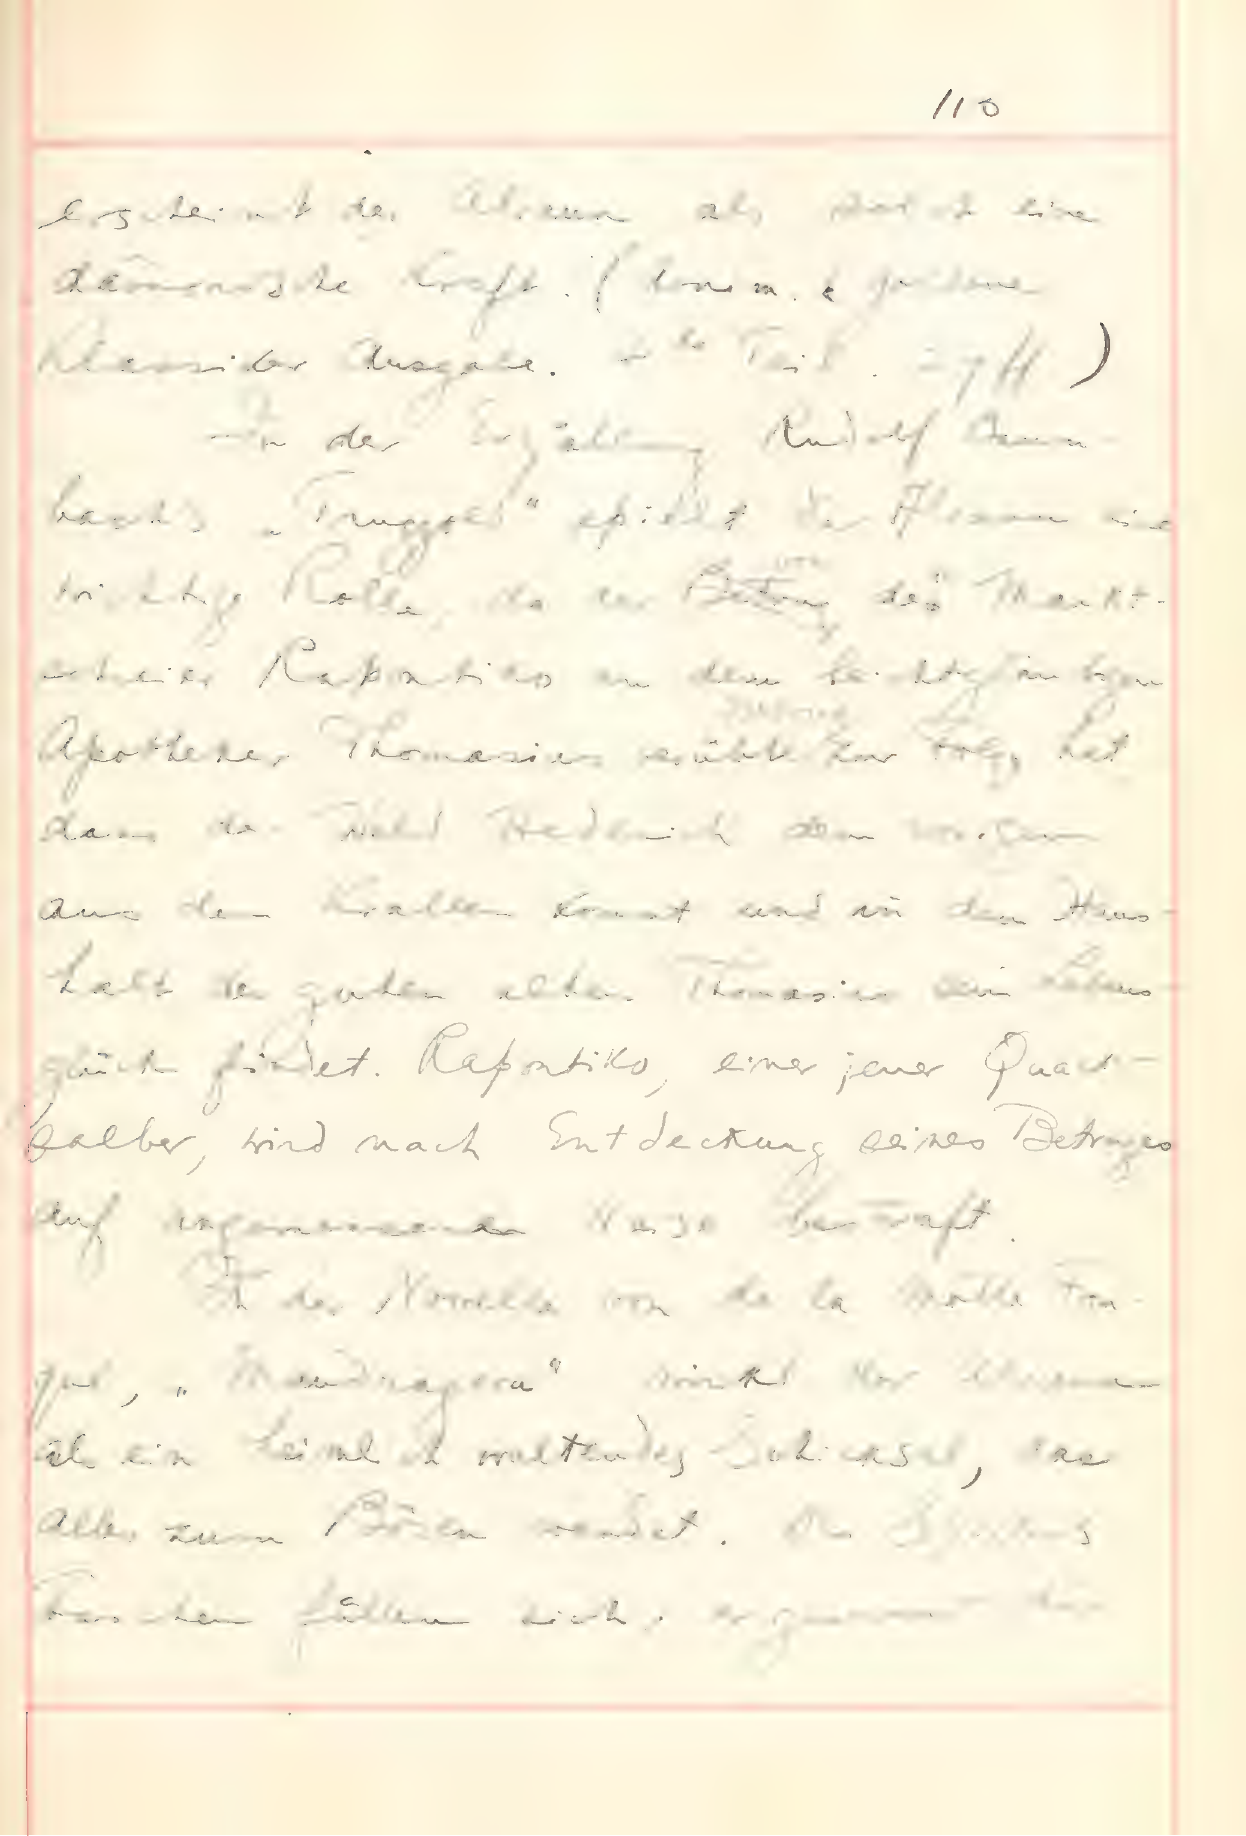 110
erscheint der Alraun als eine
dämonische Kraft. (
Klassiker Ausgabe. 2te Teil. 27 ff)
In der Erzählung Rudolf Baum-
bach's „Truggold" spielt der Alraun eine
wichtige Rolle, da der Betrug von des Markt-
schreier Rapontiko an dem leichtgläubigen
Apotheker Thomasius verübte zur Folge hat
dass der Held Hederich dem
aus den Krallen kommt und in dem Haus-
halt des guten alten Thomasius sein Lebens-
glück findet. Rapontiko, einer jener Quack-
salber, wird nach Entdeckung seines Betruges
auf angemessene Weise bestraft.
In der Novelle von de la Motte Fou-
qué, „Mandragora" wirkt der Alraun
als ein heimlich waltendes Schicksal, das
alles zum Bösen wendet. Die
Taschen füllen sich, er gewinnt